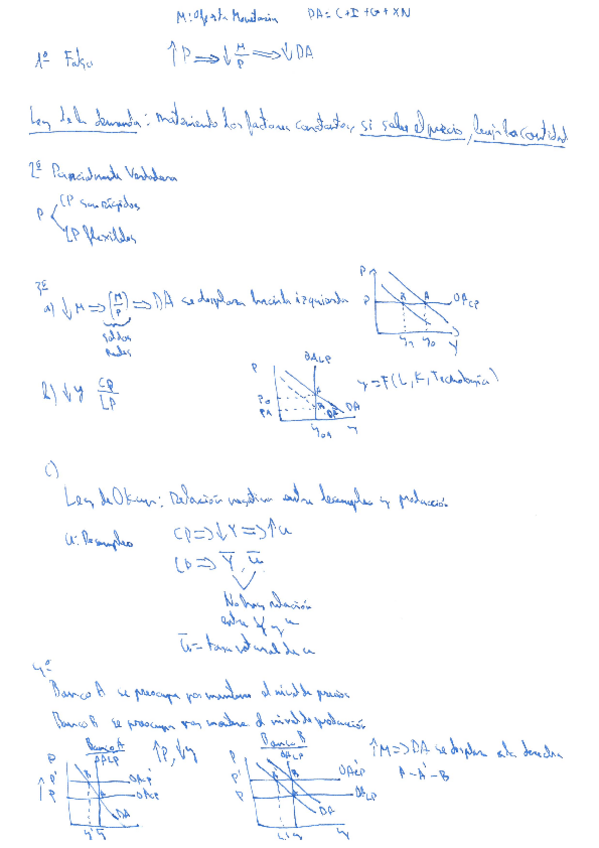 M: Oferta Monetaria DA = C+I+G+XN
1º Falso ↑P ⟹ ↓ M/P ⟹ ↓DA
Ley de la demanda: manteniendo los factores constantes, si sube el precio, baja la cantidad
2º Parcialmente Verdadera
P
CP son rígidos
LP flexibles
3º
a) ↓M ⟹ (M/P) ⟹ DA se desplaza hacia izquierda
saldos
reales
P
P B A OACP
Y1 Y0 Y
b) ↓y CP
LP
P OALP
P0 A
P1 B
DA' DA
Y
Y = F(L, K, Tecnología)
c)
Ley de Okun: relación negativa entre desempleo y producción
u: Desempleo CP ⟹ ↓Y ⟹ ↑u
LP ⟹ Y̅, u̅
No hay relación
entre Y y u
u̅ = tasa natural de u
4º
Banco A se preocupa por mantener el nivel de precios
Banco B se preocupa por mantener el nivel de producción
Banco A ↑P, ↓y Banco B ↑M ⟹ DA se desplaza a la derecha
A - A' - B
P OALP
P' B OACP'
P A OACP
DA
P OALP
P' OACP'
P OACP
DA
Y